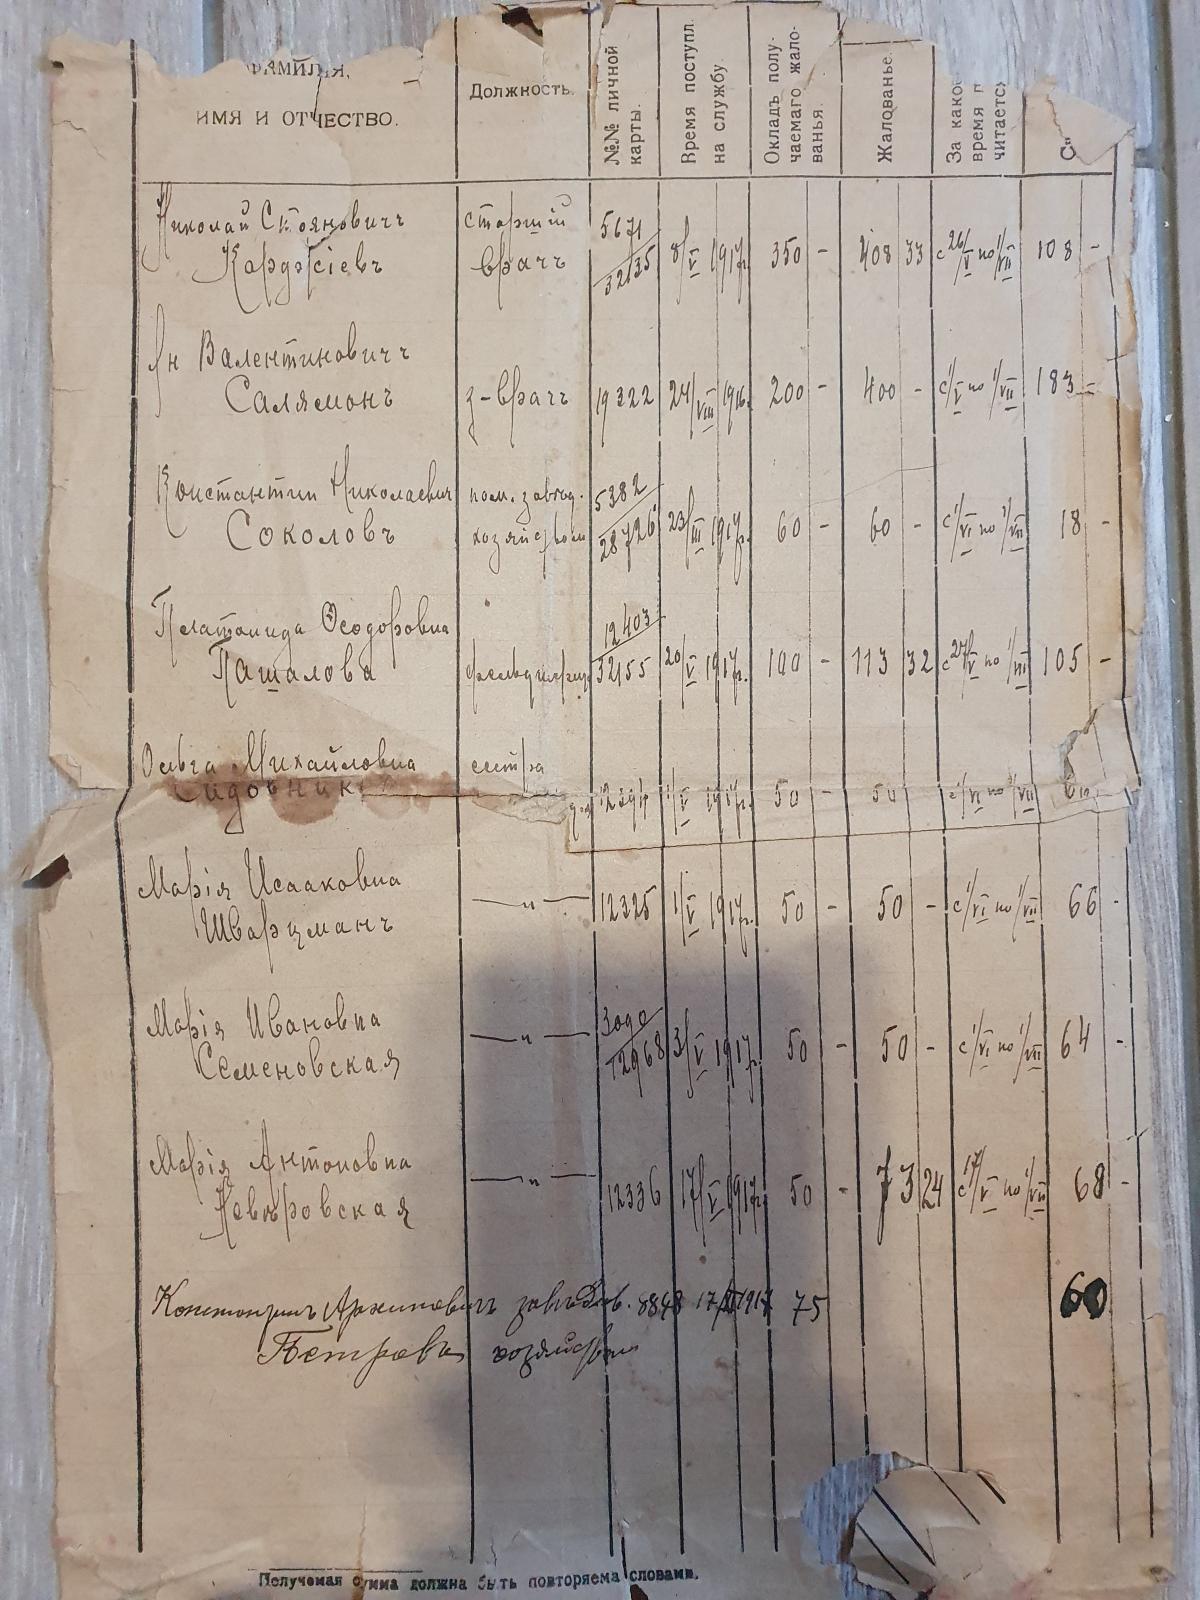 ФАМИЛІЯ,
ИМЯ И ОТЧЕСТВО.
Должность.
№№ личной карты.
Время поступл. на службу
Окладъ полу-
чаемаго жало-
ванья.
Жалованье.
За како
время п
читается
Николай Стояновичъ старшій 5671
Карджіевъ врачъ 32135 8/V 1917г. 350 - 408 33 с 26/V по 1/VII 108 -
Ян Валентиновичъ
Салямонъ з-врачъ 19322 24/VIII 1916. 200 - 400 - с 1/V по 1/VII 183 -
Константин Николаевич пом. завѣд. 5382
Соколовъ хозяйством 28726 23/III 1917г. 60 - 60 - с 1/VI по 1/VII 18 -
Платонида Ѳеодоровна 12403
Пашалова фельдшер 32155 20/V 1917г. 100 - 113 32 с 27/V по 1/VII 105 -
Ольга Михайловна сестра
12394 1/V 1917г. 50 - 50 с 1/VI по 1/VII
Марія Исааковна
Шварцманъ — „ — 12325 1/V 1917г. 50 - 50 - с 1/VI по 1/VII 66 -
Марія Ивановна — „ — 3090
Семеновская 12968 3/V 1917г. 50 - 50 - с 1/VI по 1/VII 64 -
Марія Антоновна
Невѣровская — „ — 12336 17/V 1917г. 50 - 73 24 с 17/V по 1/VII 68 -
Константинъ Архиповичъ завѣдов. 8848 75 60
Петровъ хозяйством
Получаемая сумма должна быть повторяема словами.